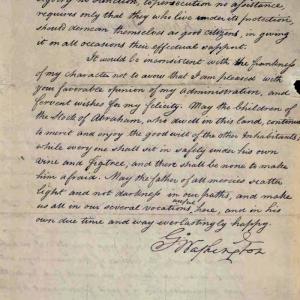 bigotry no sanction, to persecution no assistance,
requires only that they who live under its protection,
should demean themselves as good citizens, in giving
it on all occasions their effectual support.
It would be inconsistent with the frankness
of my character not to avow that I am pleased with
your favorable opinion of my administration, and
fervent wishes for my felicity. May the Children of
the Stock of Abraham, who dwell in this land, continue
to merit and enjoy the good will of the other Inhabitants;
while every one shall sit in safety under his own
vine and figtree, and there shall be none to make
him afraid. May the father of all mercies scatter
light and not darkness in our paths, and make
us all in our several vocations useful here, and in his
own due time and way everlastingly happy.
G. Washington